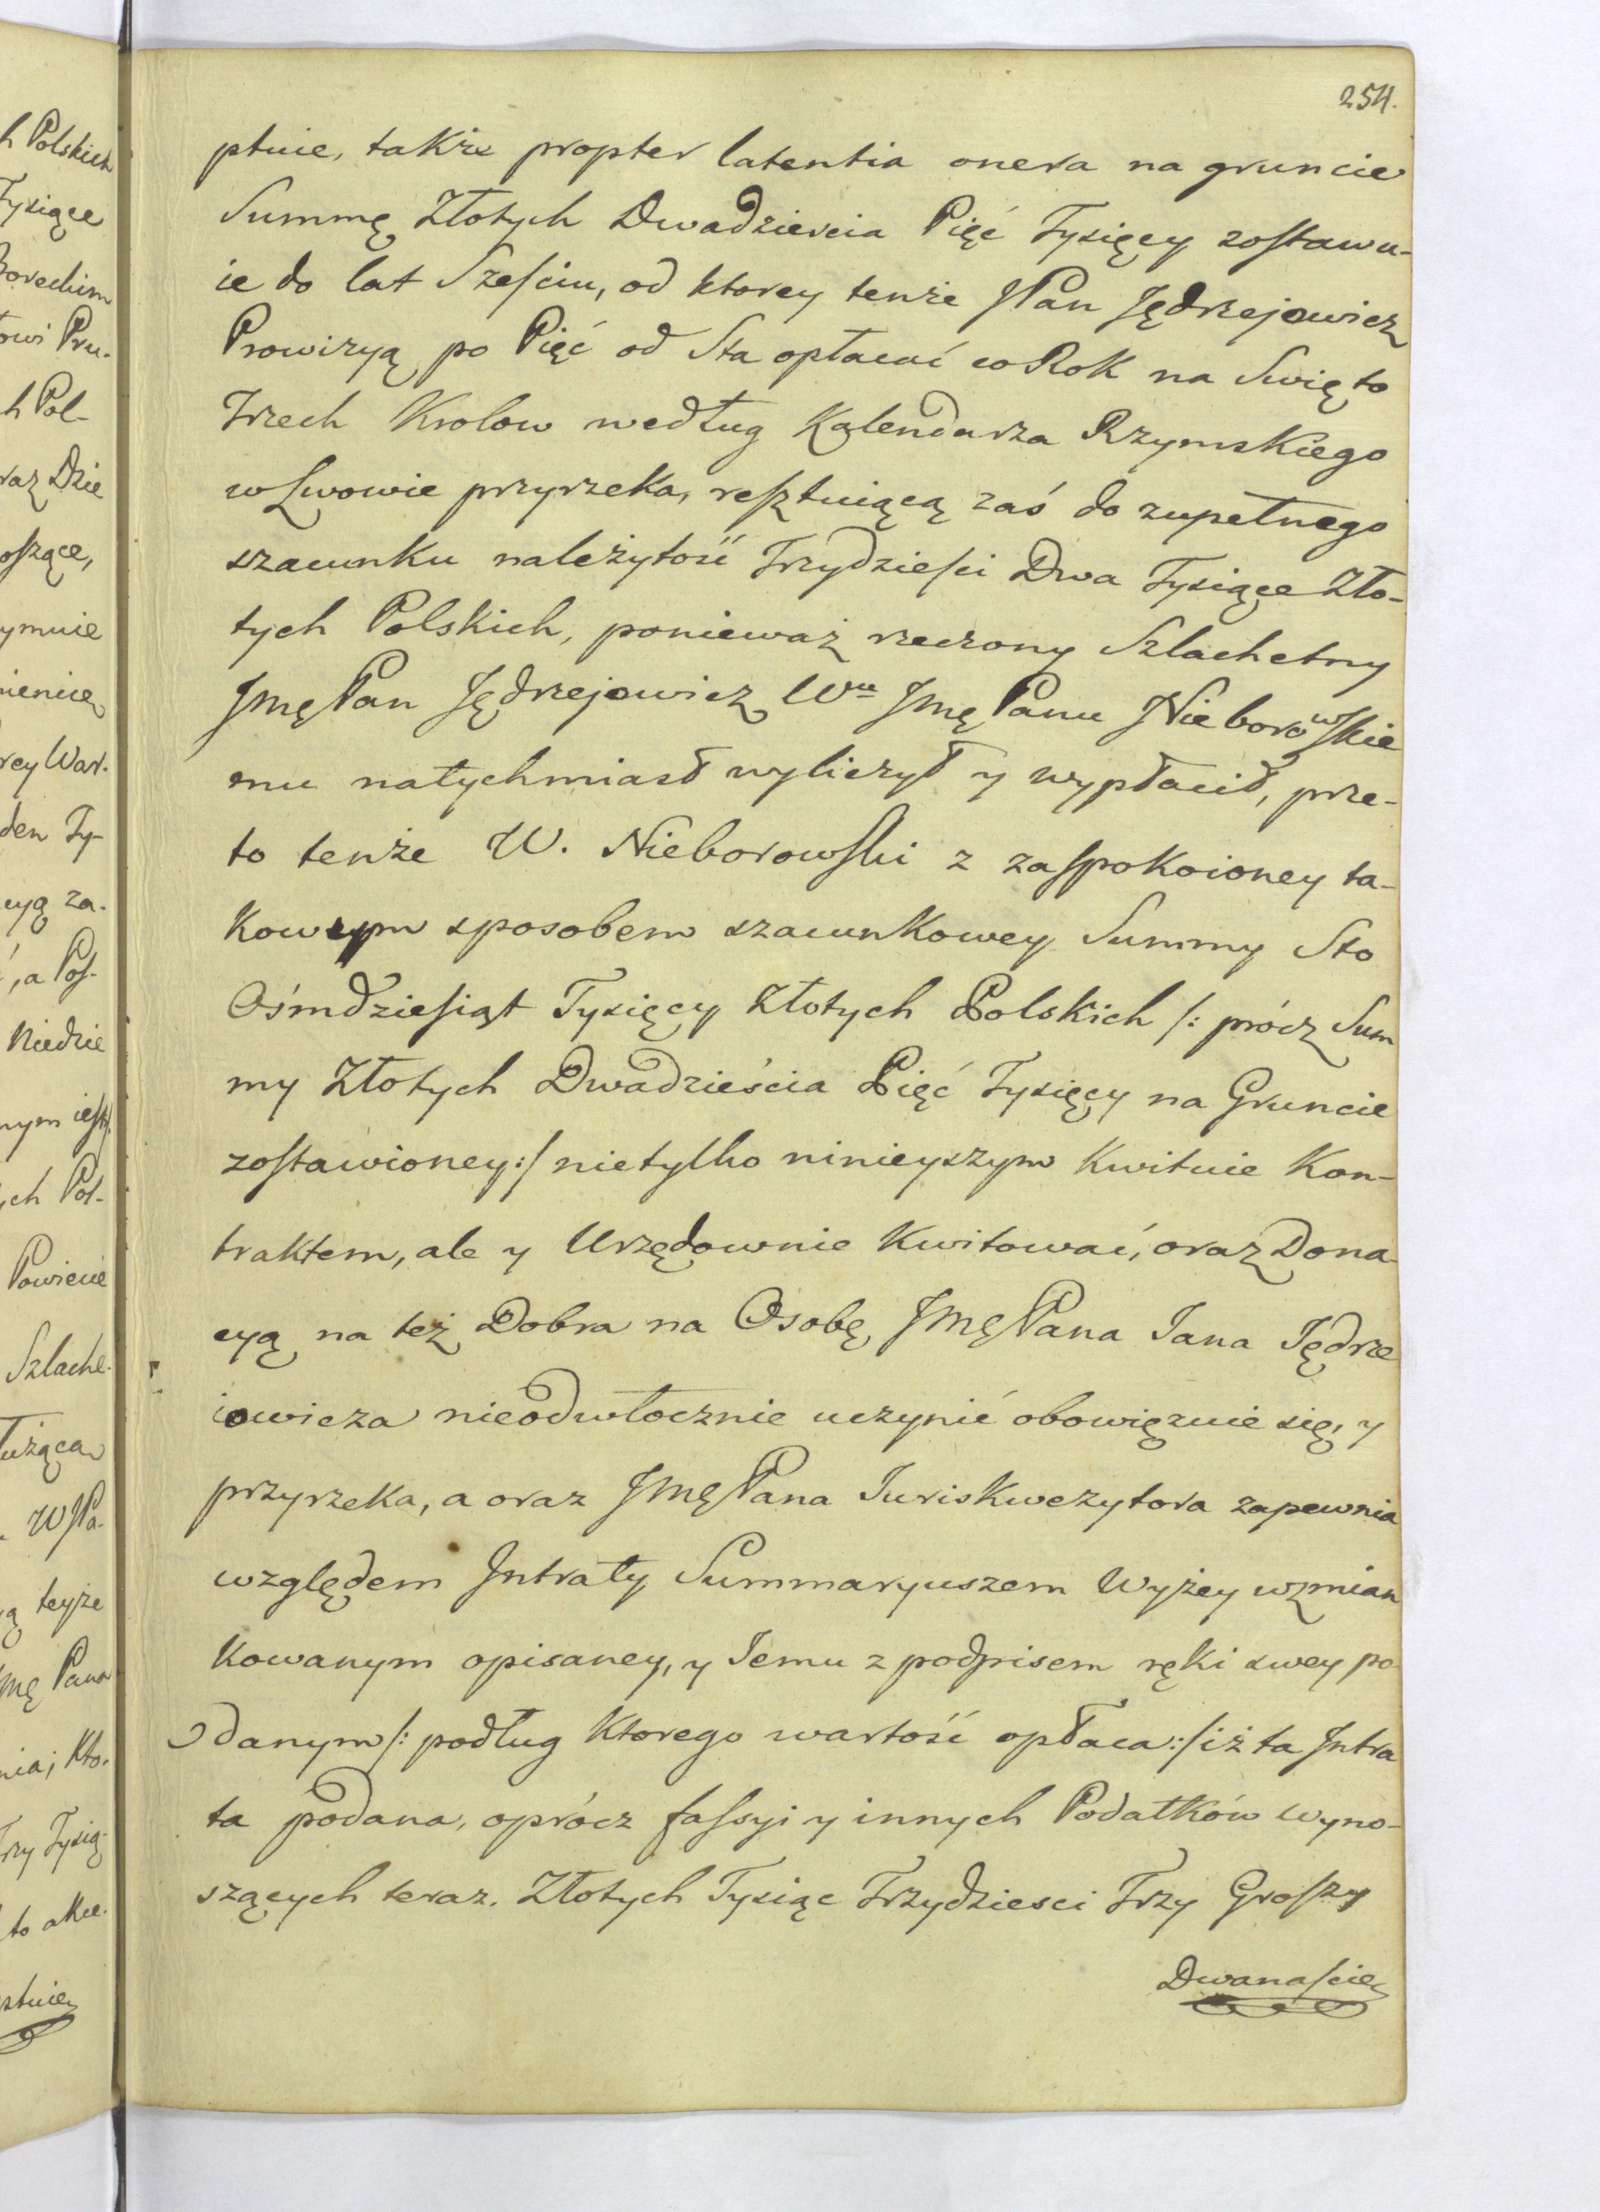 254.
ptuie, także propter latentia onera na gruncie
Summę Złotych Dwadziescia Pięć Tysięcy zostawu-
ie do lat Sześciu, od ktorey tenże JPan Jędrzejowicz
Prowizyą po Pięć od Sta opłacać co Rok na Swięto
Trzech Krolow według Kalendarza Rzymskiego
w Lwowie przyrzeka, resztuiącą zaś do zupełnego
szacunku należytość Trzydzieści Dwa Tysiące Zło-
tych Polskich, ponieważ rzeczony Szlachetny
Jmę Pan Jędrzejowicz Wu Jmę Panu Nieborowskie
mu natychmiast wyliczył y wypłacił, prze-
to tenże W. Nieborowski z zaspokoioney ta-
kowym sposobem szacunkowey Summy Sto
Ośmdziesiąt Tysięcy Złotych Polskich /: prócz Sum
my Złotych Dwadzieścia Pięć Tysięcy na Gruncie
zostawioney :/ nietylko ninieyszym Kwituie Kon-
traktem, ale y Urzędownie Kwitować, oraz Dona-
cyą na też Dobra na Osobę Jmę Pana Jana Jędrze
iowicza nieodwłocznie uczynić obowięzuie się, y
przyrzeka, a oraz Jmę Pana Juriskwezytora zapewnia
względem Intraty Summaryuszem Wyżey wzmian
kowanym opisaney, y Jemu z podpisem ręki swey po
danym /: podług Ktorego wartość opłaca :/ iż ta Intra
ta podana, oprócz fassyi y innych Podatków wyno-
szących teraz. Złotych Tysiąc Trzydziesci Trzy Groszy
Dwanaście